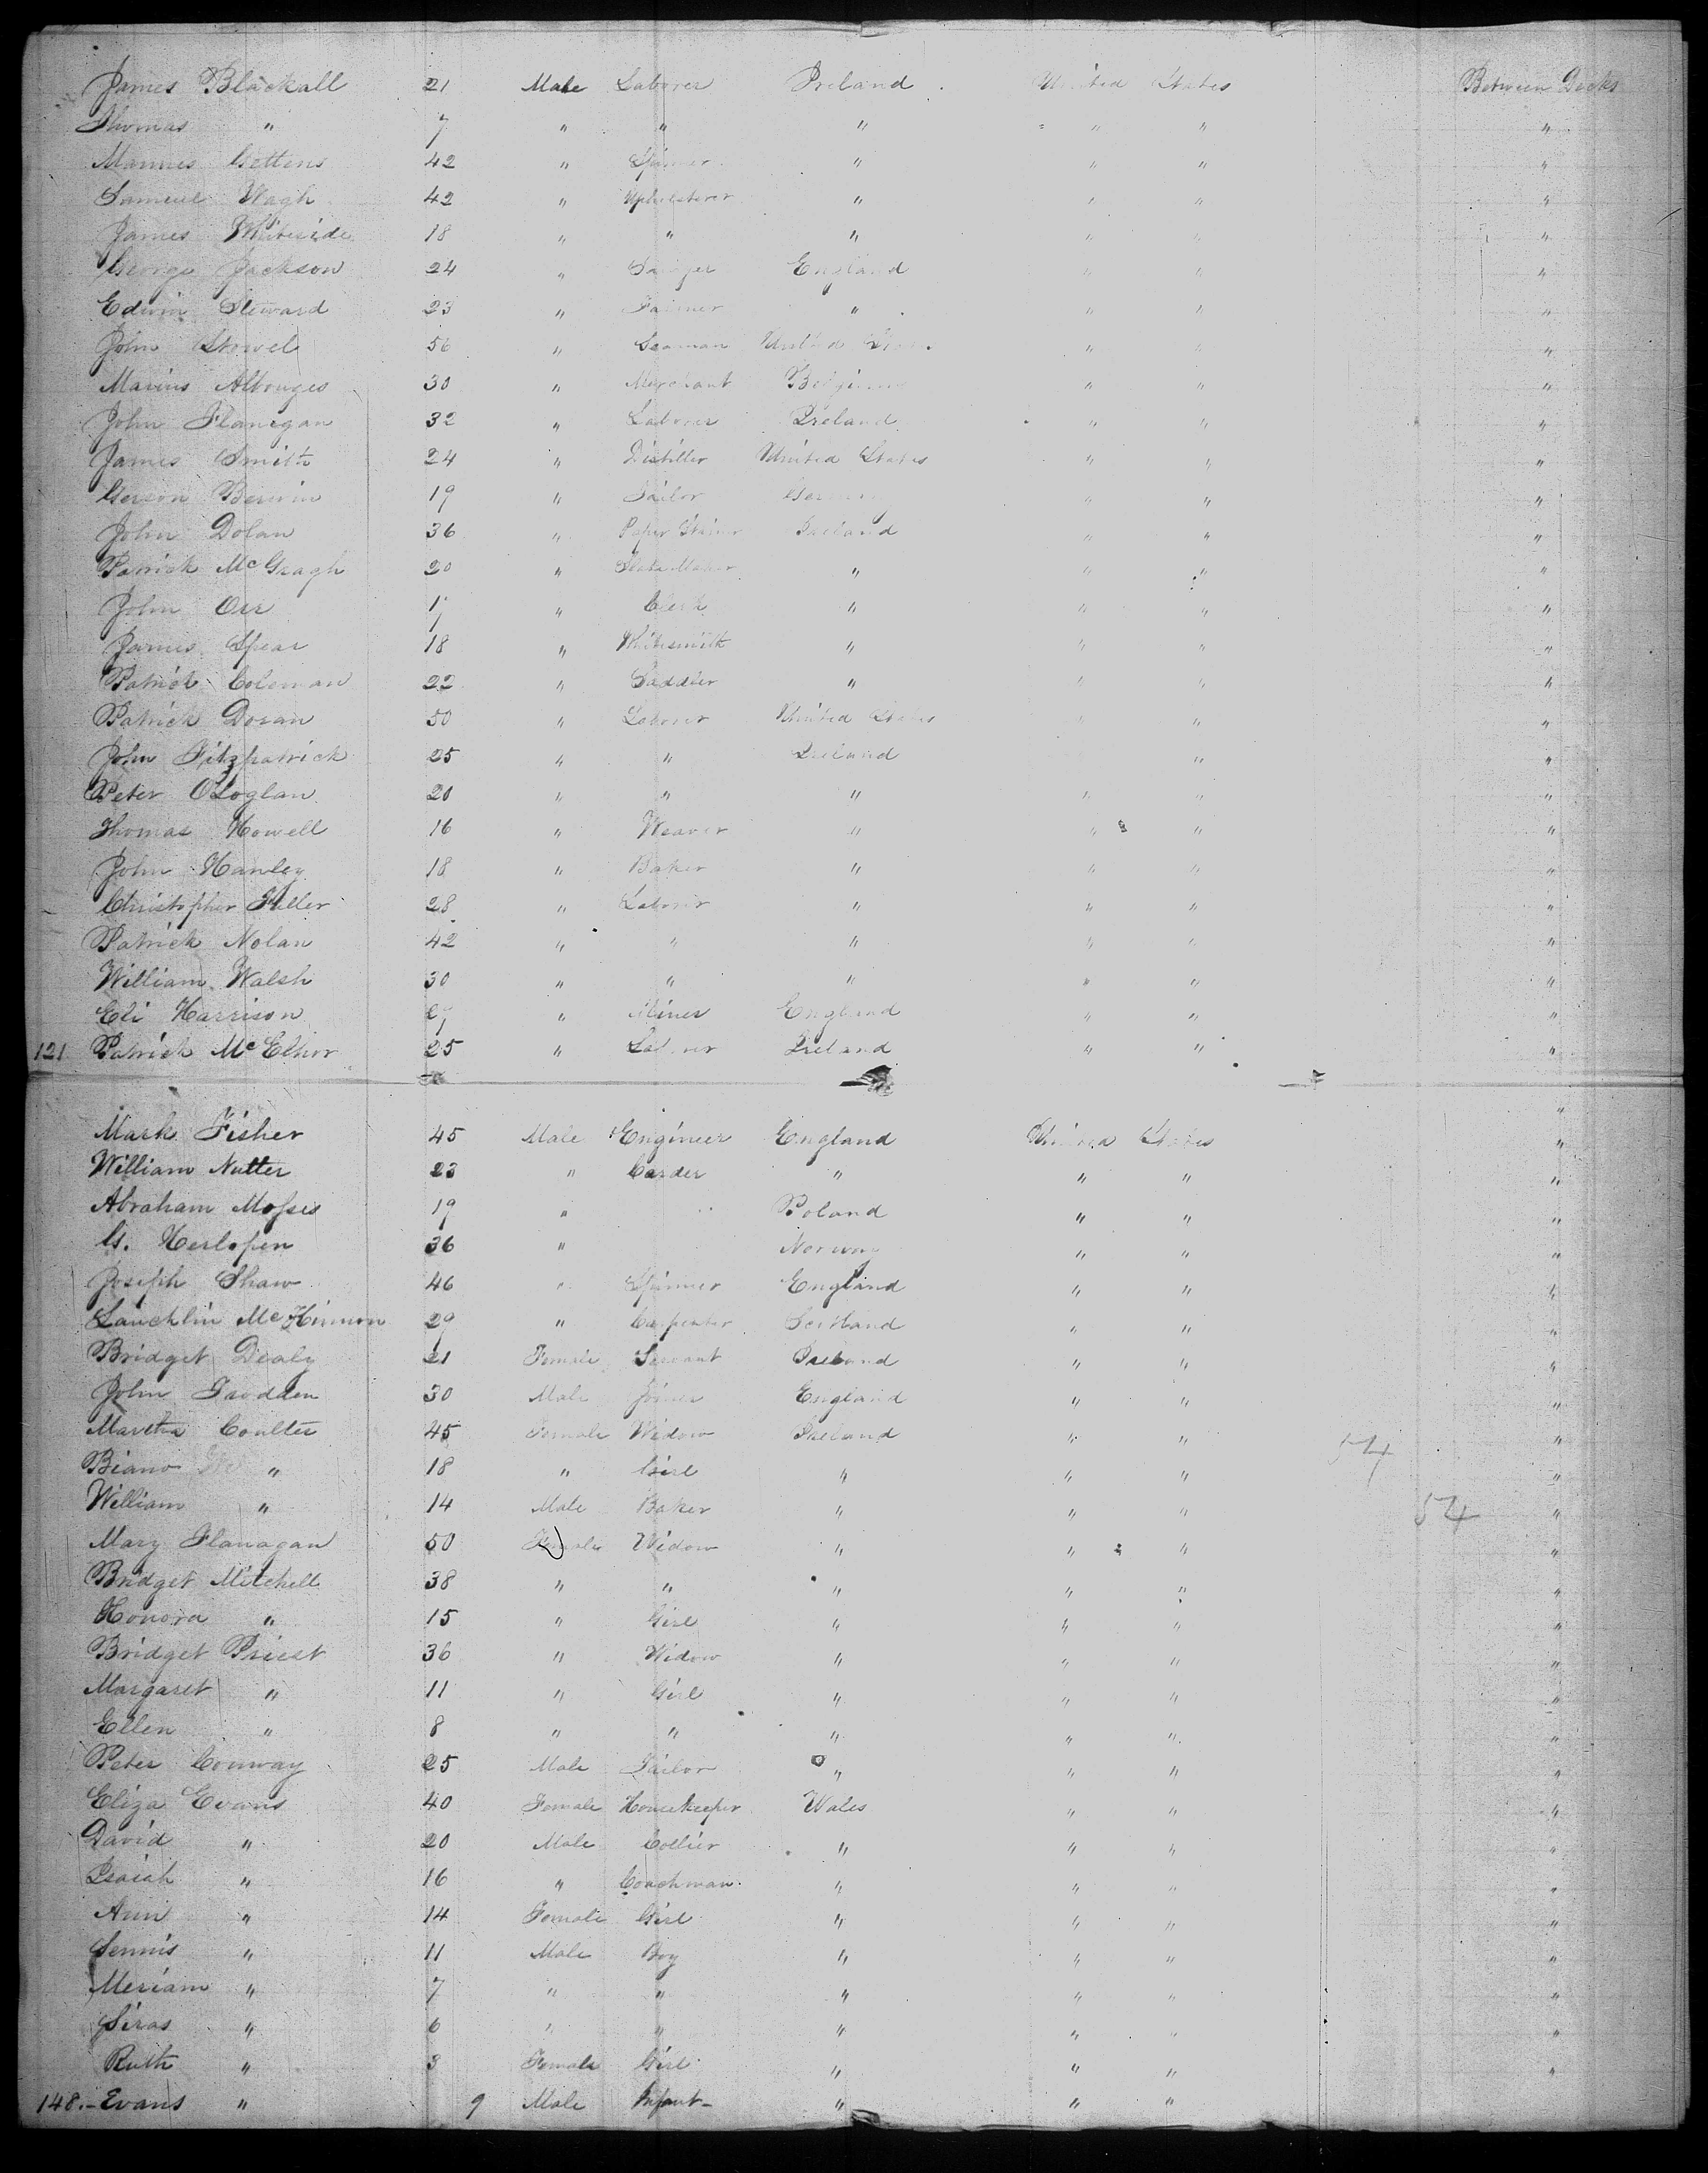 James Blackall 21 Male Laborer Ireland United States Between Decks
Thomas " 7 " " " " " "
Mannes Gettens 42 " Spinner " " " "
Samuel Wagh 42 " Upholsterer " " " "
James Whiteside 18 " " " " " "
George Jackson 24 " England " " "
Edwin Steward 23 " Farmer " " " "
John Stowel 56 " Seaman United States " " "
Marius Albouges 30 " Merchant Belgium " " "
John Flanigan 32 " Laborer Ireland " " "
James Smith 24 " Distiller United States " " "
Gerson Berwin 19 " Tailor Germany " " "
John Dolan 36 " Paper Stainer Ireland " " "
Patrick McGragh 20 " Maker " " " "
John Orr 17 " Clerk " " " "
James Spear 18 " Whitesmith " " " "
Patrick Coleman 22 " Saddler " " " "
Patrick Doran 50 " Laborer United States " "
John Fitzpatrick 25 " " Ireland " "
Peter O'Loglan 20 " " " " " "
Thomas Howell 16 " Weaver " " " "
John Hanley 18 " Baker " " " "
Christopher Fuller 28 " Laborer " " " "
Patrick Nolan 42 " " " " " "
William Walsh 30 " " " " " "
Eli Harrison " Miner England " " "
121 Patrick McElhor 25 " Laborer Ireland " " "
"
Mark Fisher 45 Male Engineer England United States "
William Nutter 23 " Carder " " " "
Abraham Mosses 19 " Poland " " "
G. Herlossen 36 " Norway " " "
Joseph Shaw 46 " Spinner England " " "
Lauchlin McKinnon 29 " Carpenter Scotland " " "
Bridget Dealy 21 Female Servant Ireland " " "
John Trodden 30 Male Joiner England " " "
Martha Coulter 45 Female Widow Ireland " " "
54
Biano " 18 " Girl " " " "
William " 14 Male Baker " " " 54 "
Mary Flanagan 50 Female Widow " " " "
Bridget Mitchell 38 " " " " " "
Honora " 15 " Girl " " " "
Bridget Priest 36 " Widow " " " "
Margaret " 11 " Girl " " " "
Ellen " 8 " " " " " "
Peter Conway 25 Male Tailor " " " "
Eliza Evans 40 Female Housekeeper Wales " " "
David " 20 Male Collier " " " "
Isaiah " 16 " Coachman " " " "
Ann " 14 Female Girl " " " "
Jennis " 11 Male Boy " " " "
Meriam " 7 " " " " " "
Siras " 6 " " " " " "
Ruth " 3 Female Girl " " " "
148.- Evans " 9 Male Infant- " " "